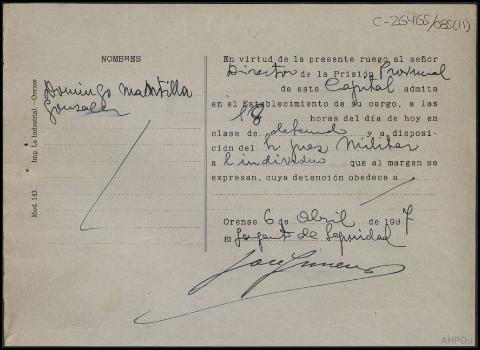 C-26465/085(11)
NOMBRES
Domingo Mantilla
Gonzalez
Imp. La Industrial.-Orense
Mod. 143.
En virtud de la presente ruego al señor
Director de la Prisión Provincial
de esta Capital admita
en el Establecimiento de su cargo, a las
18 horas del día de hoy en
clase de detenido y a disposi-
ción del Militar
a l individuo que al margen se
expresan, cuya detención obedece a
Orense 6 de Abril de 1937
El Sargento de Seguridad
AHPOu